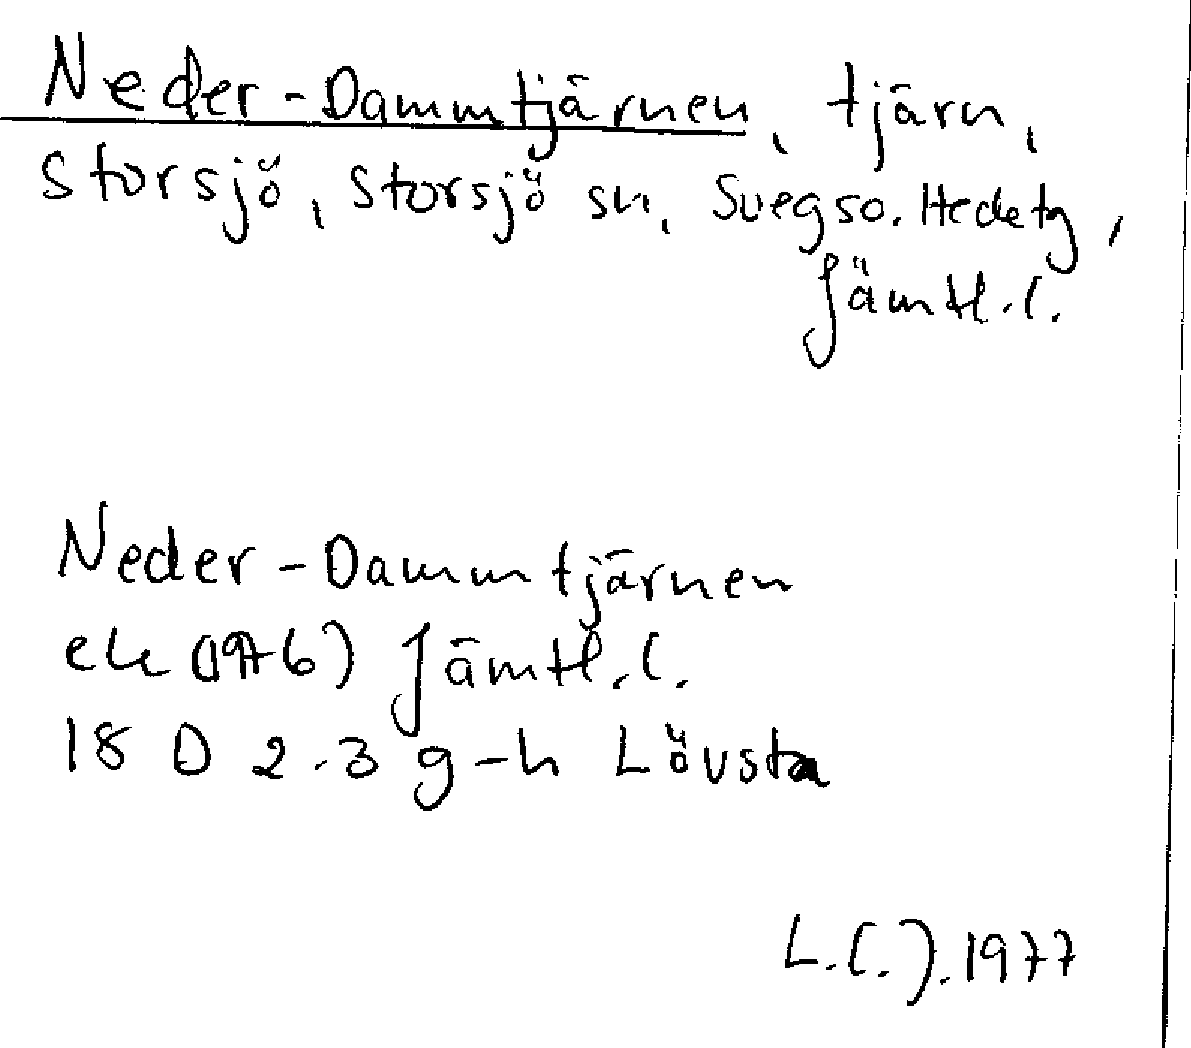 Neder-Dammtjärnen, tjärn,
Storsjö, Storsjö sn, Svegs o. Hede tg,
Jämtl. l.
Neder-Dammtjärnen
ek (1976) Jämtl. l.
18 D 2-3 g-h Lövsta
1977